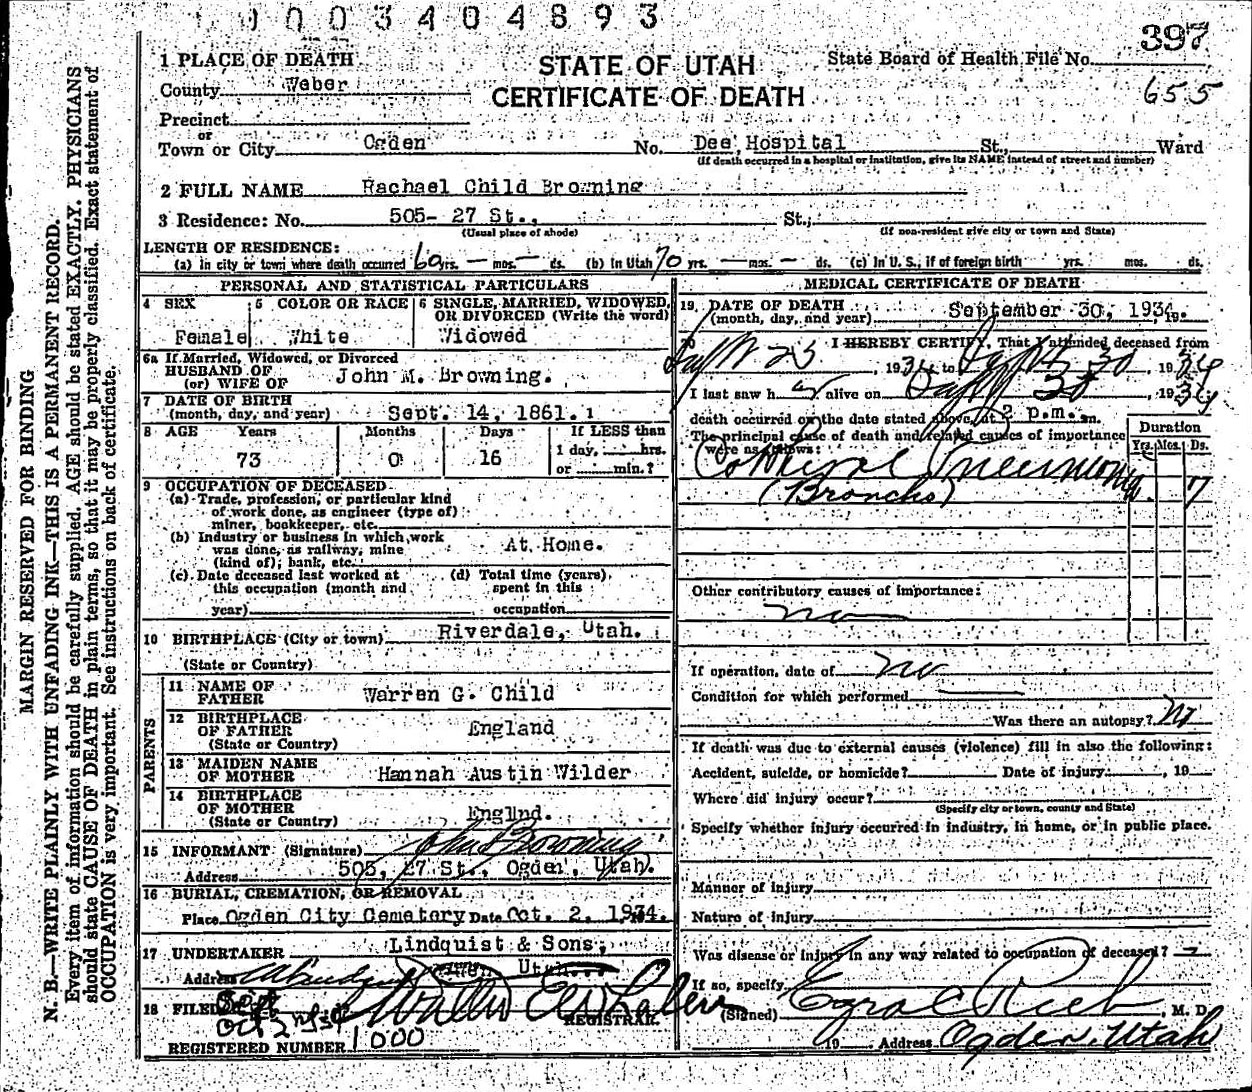 0003404893
397
655
1 PLACE OF DEATH
STATE OF UTAH
CERTIFICATE OF DEATH
State Board of Health File No.
County Weber
Precinct
or
Town or City Ogden No. Dee Hospital St., Ward
(If death occurred in a hospital or institution, give its NAME instead of street and number)
2 FULL NAME Rachael Child Browning
3 Residence: No. 505- 27 St., St.,
(Usual place of abode) (If non-resident give city or town and State)
LENGTH OF RESIDENCE:
(a) In city or town where death occurred 60 yrs. — mos. — ds. (b) In Utah 70 yrs. — mos. — ds. (c) In U. S., if of foreign birth yrs. mos. ds.
PERSONAL AND STATISTICAL PARTICULARS
4 SEX 5 COLOR OR RACE 6 SINGLE, MARRIED, WIDOWED, OR DIVORCED (Write the word)
Female White Widowed
6a If Married, Widowed, or Divorced
HUSBAND OF
(or) WIFE OF John M. Browning.
7 DATE OF BIRTH
(month, day, and year) Sept. 14, 1861.
8 AGE Years Months Days If LESS than
1 day, hrs.
73 0 16 or min.?
9 OCCUPATION OF DECEASED
(a) Trade, profession, or particular kind
of work done, as engineer (type of)
miner, bookkeeper, etc.
(b) Industry or business in which work
was done, as railway, mine
(kind of); bank, etc. At Home.
(c) Date deceased last worked at
this occupation (month and
year)
(d) Total time (years)
spent in this
occupation
10 BIRTHPLACE (City or town) Riverdale, Utah.
(State or Country)
PARENTS
11 NAME OF
FATHER Warren G. Child
12 BIRTHPLACE
OF FATHER England
(State or Country)
13 MAIDEN NAME
OF MOTHER Hannah Austin Wilder
14 BIRTHPLACE
OF MOTHER
(State or Country) Englnd.
15 INFORMANT (Signature) John Browning
Address 505, 27 St., Ogden, Utah.
16 BURIAL, CREMATION, OR REMOVAL
Place Ogden City Cemetery Date Oct. 2, 1934.
17 UNDERTAKER Lindquist & Sons,
Address Ogden Utah.
18 FILED Oct 2
REGISTRAR
REGISTERED NUMBER 1000
MEDICAL CERTIFICATE OF DEATH
19 DATE OF DEATH
(month, day, and year) September 30, 1934, 19
I HEREBY CERTIFY, That I attended deceased from
Sept 23, 1934 to Sept 30, 1934
I last saw her alive on Sept 30, 1934
death occurred on the date stated above, at 2 p.m. m.
The principal cause of death and related causes of importance
were as follows:
Duration
Yrs. Mos. Ds.
Pneumonia
(Broncho) 7
Other contributory causes of importance:
no
If operation, date of no
Condition for which performed
Was there an autopsy? no
If death was due to external causes (violence) fill in also the following:
Accident, suicide, or homicide? Date of injury , 19
Where did injury occur?
(Specify city or town, county and State)
Specify whether injury occurred in industry, in home, or in public place.
Manner of injury
Nature of injury
Was disease or injury in any way related to occupation of deceased?
If so, specify
(Signed) Ezra C Rich, M. D.
19 Address Ogden, Utah
MARGIN RESERVED FOR BINDING
N. B.—WRITE PLAINLY WITH UNFADING INK—THIS IS A PERMANENT RECORD.
Every item of information should be carefully supplied. AGE should be stated EXACTLY. PHYSICIANS
should state CAUSE OF DEATH in plain terms, so that it may be properly classified. Exact statement of
OCCUPATION is very important. See instructions on back of certificate.